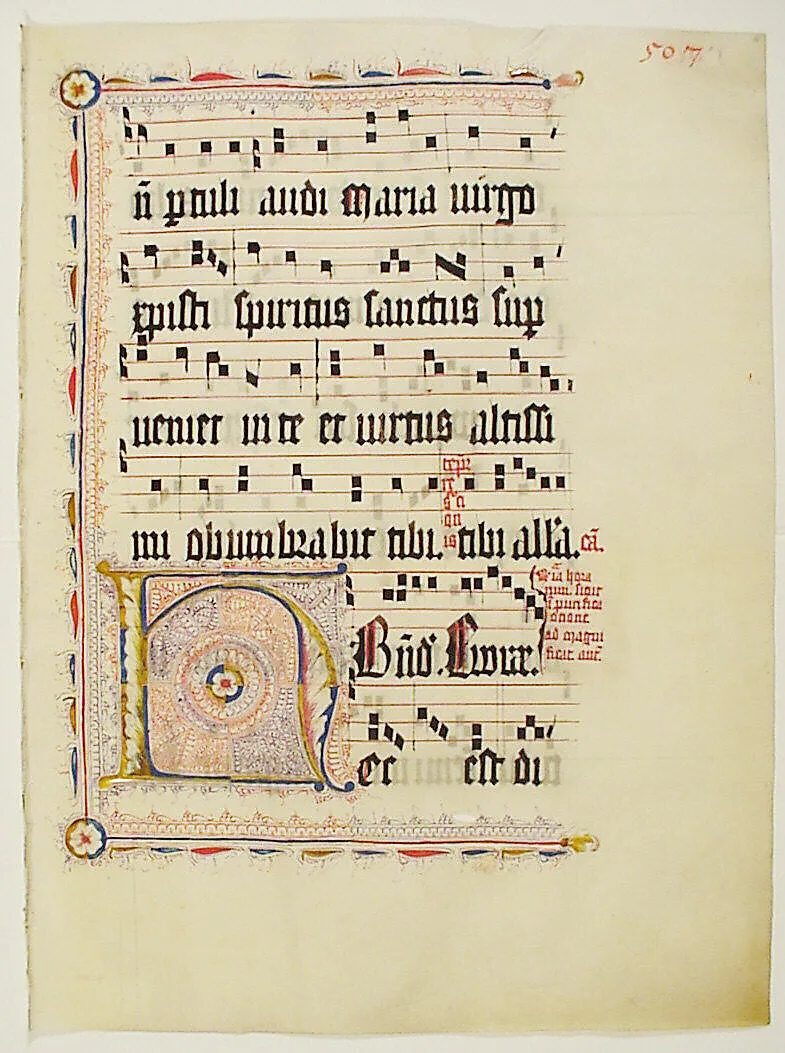 507
n̄ ꝑtuli audi maria uirgo
xpisti spiritus sanctus suꝑ
ueniet in te et uirtus altissi
mi obumbrabit tibi. tibi all'a. cā.
Bn̄d'. Ewoıæ.
Hec est di